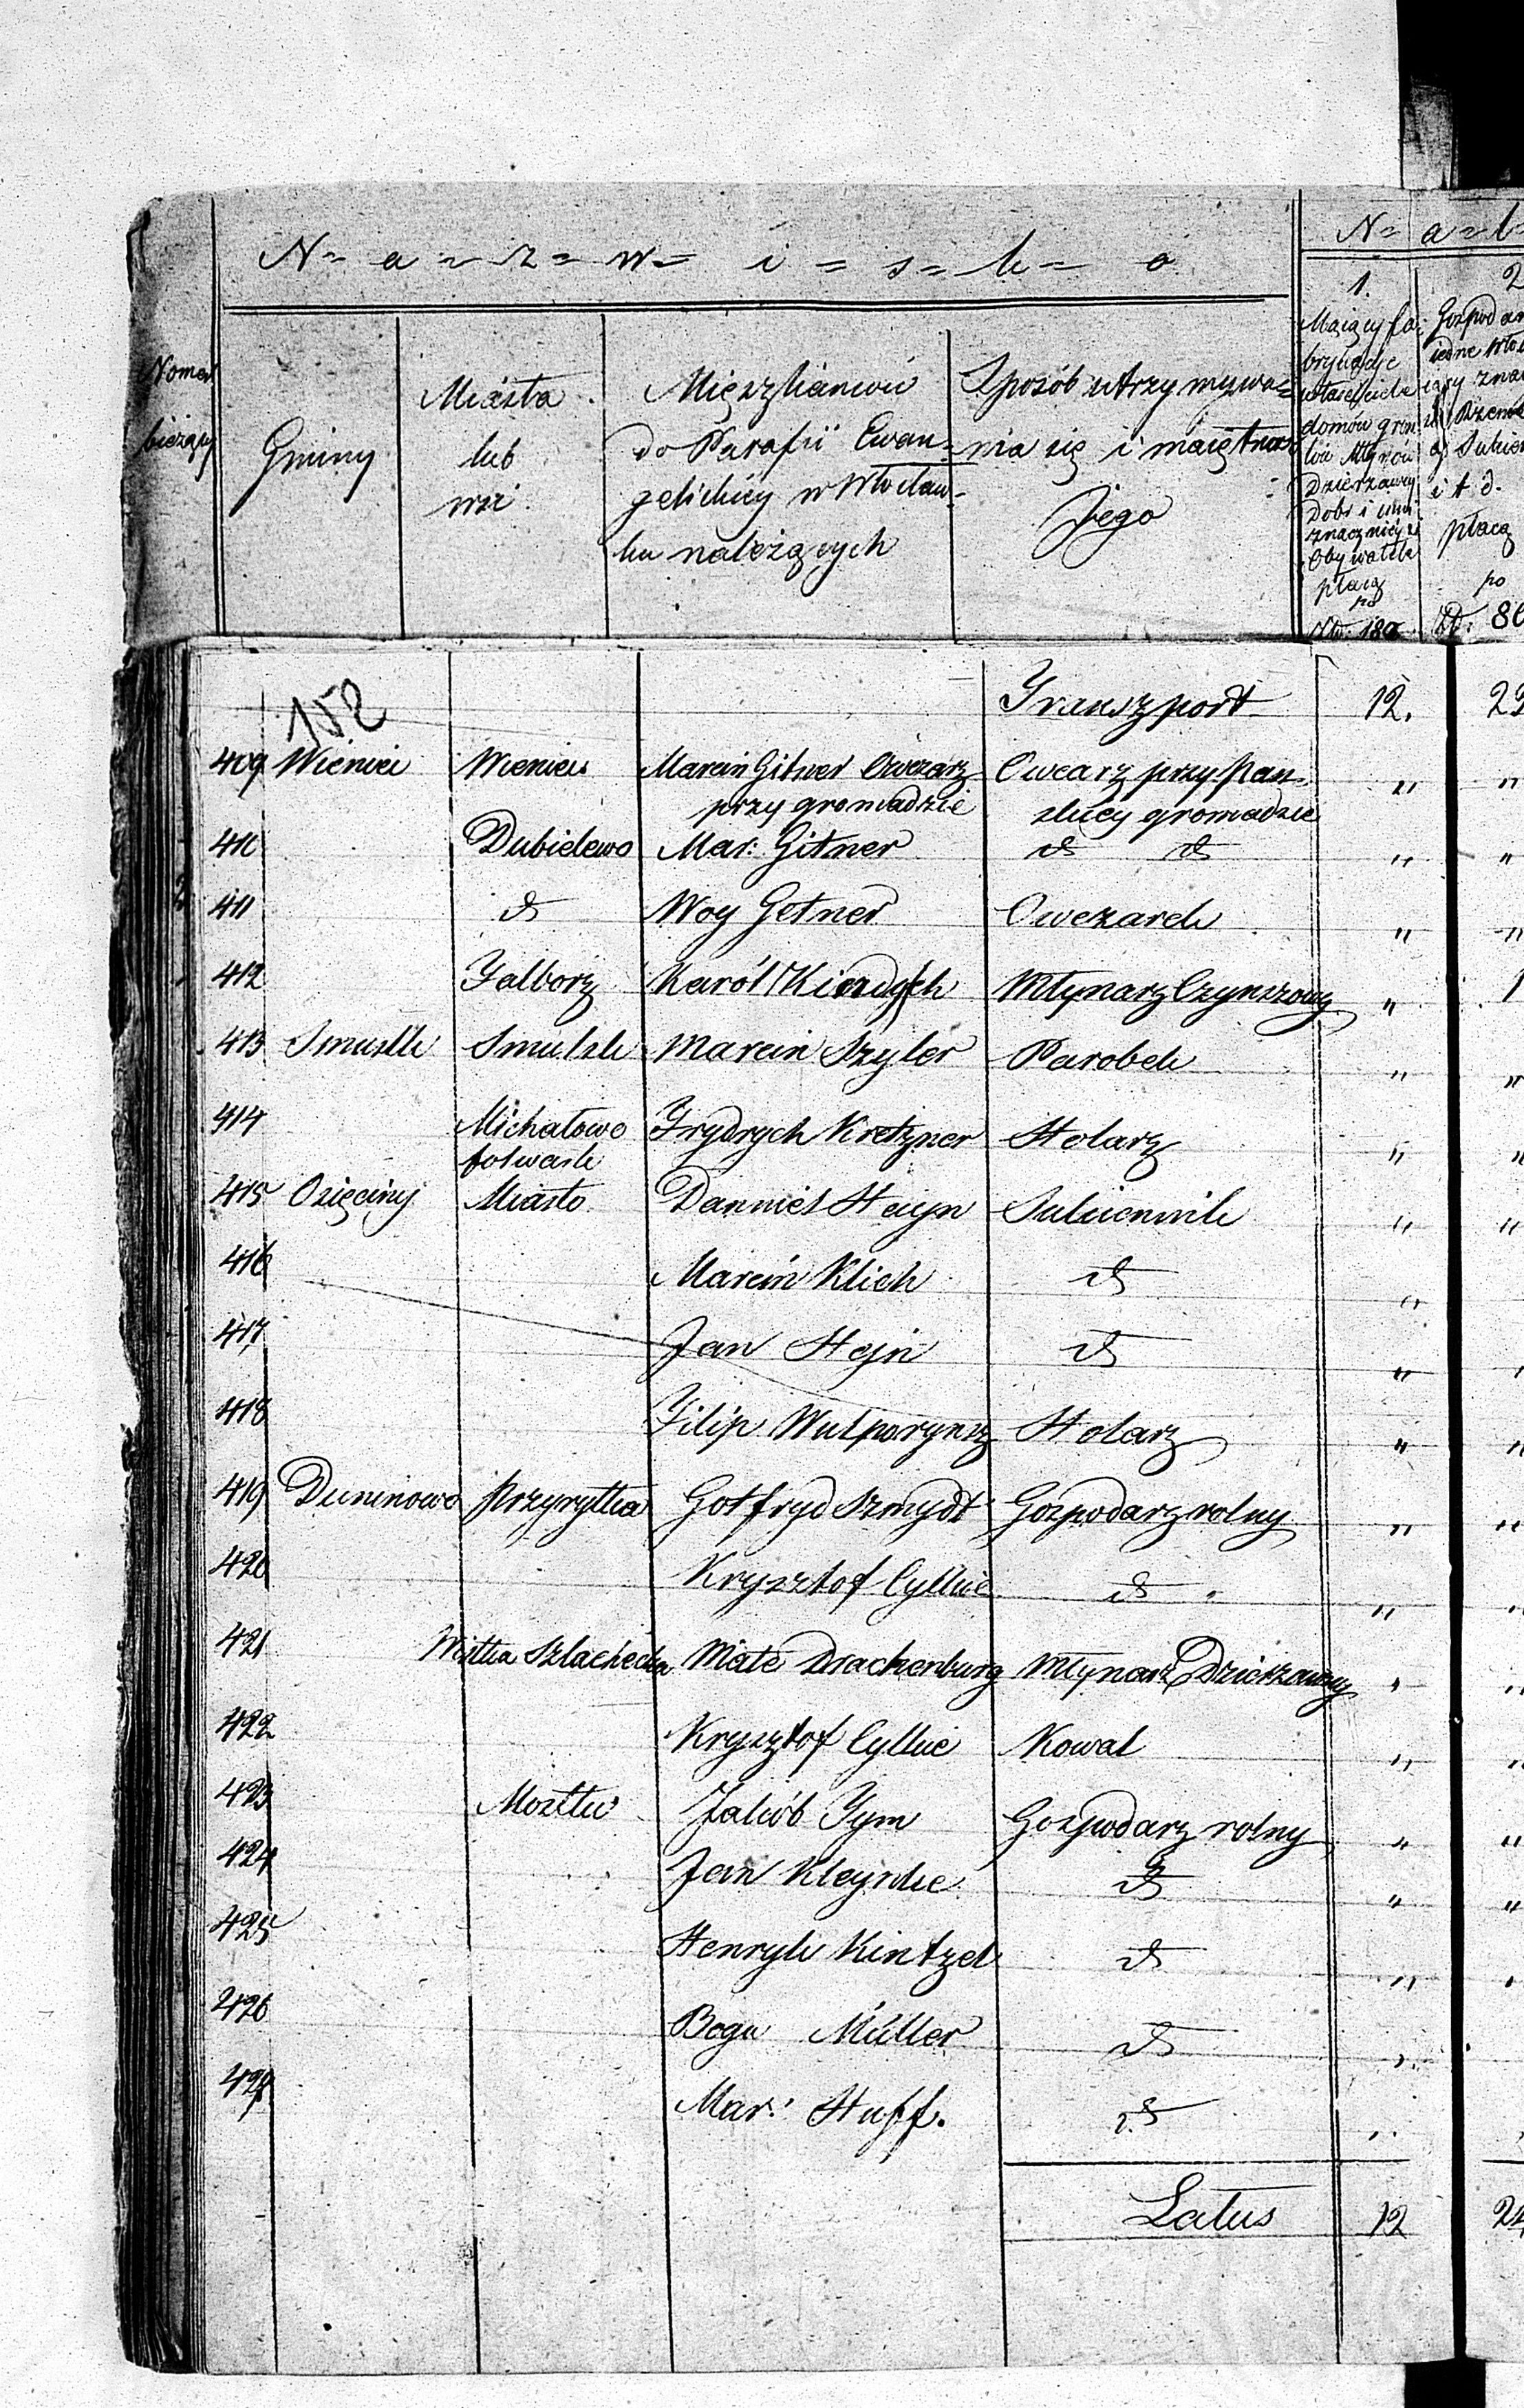 N = a = z = w = i = s = k = o
N = a = l =
Nomer
bieżący
Gminy
Miasta
lub
wsi
Mieszkańców
do Parafii Ewan-
gelickiey w Włocław-
ku należących
Sposób utrzymywa-
nia się i maiętnoś
Jego
1.
Maiący fa-
bryki
właściciele
domów grun
tów Młynów
Dzierżawcy
Dobr i inni
znacznieysi
Obywatele
płacą
po
2
Gospodar
iedne Włók
i t d.
płacą
po
Zł. 80
152
Transzport 12. 22
409 Wieniec Wieniec Marcin Gitner Owczarz Owcarz przy Pan- " "
przy gromadzie skiey gromadzie
410 Dubielewo Mar: Gitner d d " "
411 d Woy Getner Owczarek " "
412 Falborz Karól Młynarz Czynszowy " 1
413 Smulsk Smulsk Marcin Szyler Parobek " "
414 Michałowo Frydrych Kretzner Stolarz " "
folwark
415 Osięciny Miasto Danniel Heyn Sukiennik " "
416 Marcin Klich d "
417 Jan Hejn d "
418 Filip Stolarz " "
419 Duninowo Przyrytka Gotfryd Szmydt Gospodarz rolny " "
420 Krysztof Cylke d " "
421 Wistka Szlachecka Mate Drachenburg Młynarz Dzierzawny " "
422 Krysztof Cylke Kowal " "
423 Mostki Jakób Tym Gospodarz rolny " "
424 Jan Kleynke d " "
425 Henryk Kintzel d "
426 Bogu Müller d "
427 Mar: Huff. d "
Latus 12 24